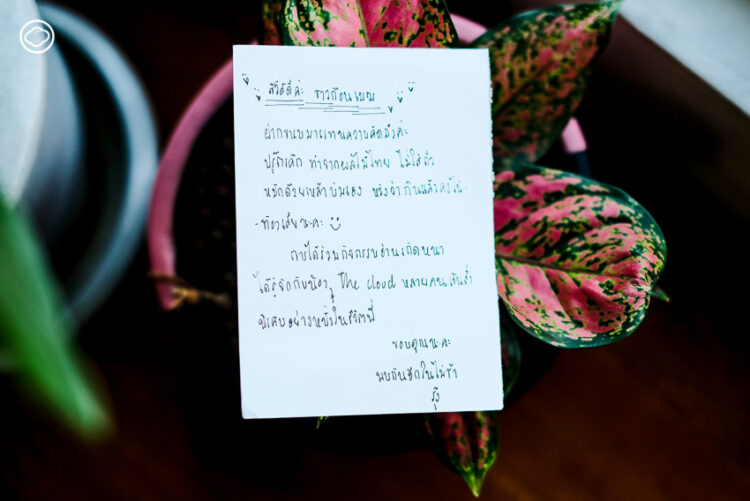 สวัสดีค่ะ ชาวก้อนเมฆ
ฝากขนมมาแทนความคิดถึงค่ะ
ฟรุ๊ตเค้ก ทำจากผลไม้ไทย ไม่ใส่ถั่ว
หมักด้วยเหล้าบ่มเอง หวังว่ากินแล้วจะ
นะคะ
การได้ร่วมกิจกรรม
ได้รู้จักกับน้องๆ The cloud หลายคนเป็นสิ่ง
พิเศษอย่างหนึ่งในชีวิตพี่
ขอบคุณนะคะ
พบกันอีกในไม่ช้า
รุ้ง